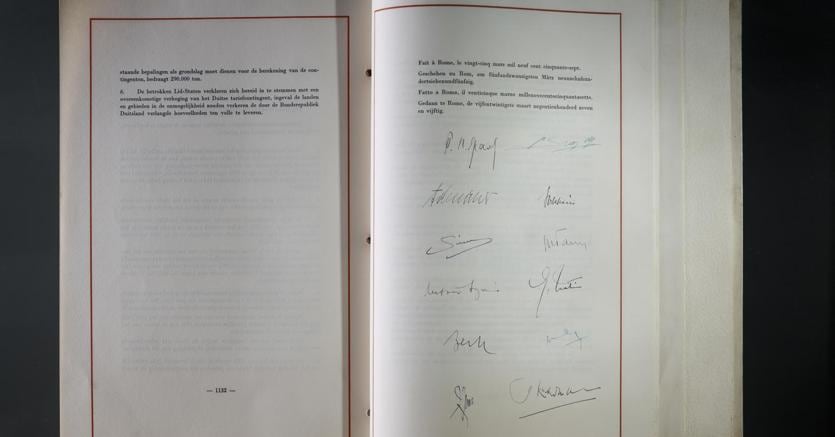 staande bepalingen als grondslag moet dienen voor de berekening van de con-
tingenten, bedraagt 290.000 ton.
6. De betrokken Lid-Staten verklaren zich bereid in te stemmen met een
overeenkomstige verhoging van het Duitse tariefcontingent, ingeval de landen
en gebieden in de onmogelijkheid zouden verkeren de door de Bondsrepubliek
Duitsland verlangde hoeveelheden ten volle te leveren.
— 1132 —
Fait à Rome, le vingt-cinq mars mil neuf cent cinquante-sept.
Geschehen zu Rom, am fünfundzwanzigsten März neunzehnhun-
dertsiebenundfünfzig.
Fatto a Roma, il venticinque marzo millenovecentocinquantasette.
Gedaan te Rome, de vijfentwintigste maart negentienhonderd zeven
en vijftig.